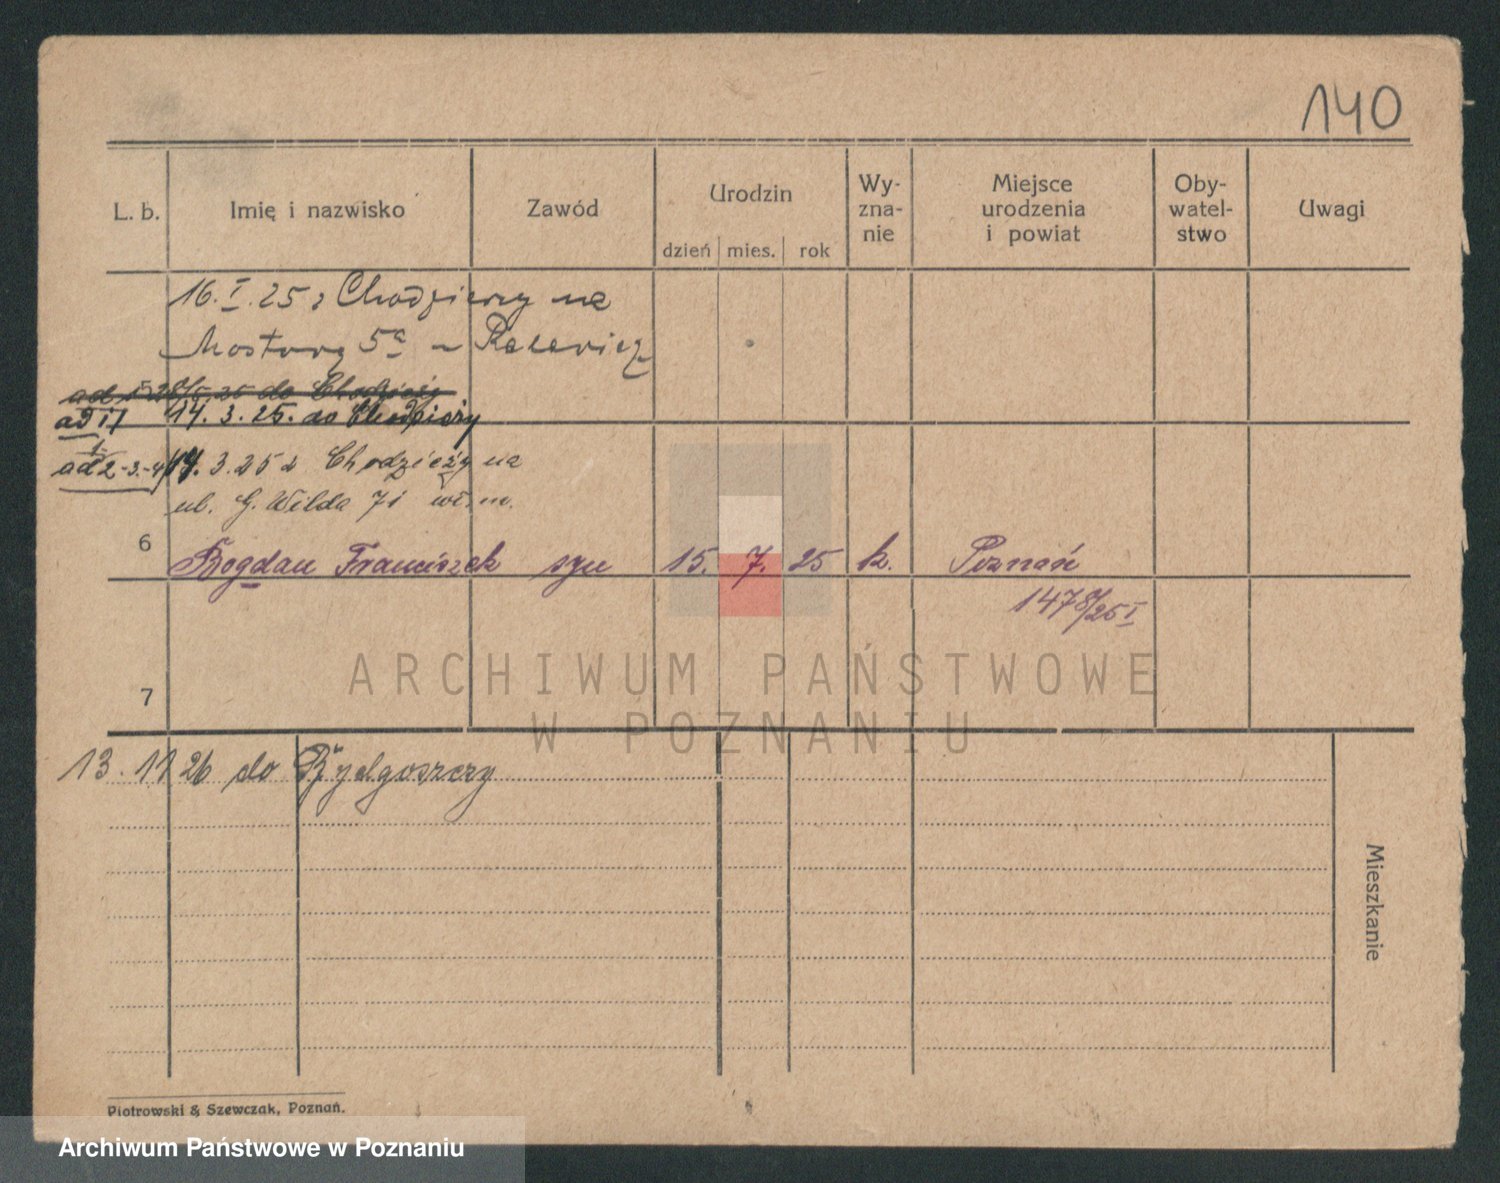 140
L. b. Imię i nazwisko Zawód Urodzin dzień mies. rok Wy-zna-nie Miejsce urodzenia i powiat Oby-watel-stwo Uwagi
16. I. 25 z Chodzieży na
Mostową 5a
ad 1 28/5 25 do Chodzieży
ad 1/ 14. 3. 25. do Chodzieży
ad 1-2-3-4/ 14. 3. 25 z Chodzieży na
ul. G. Wilda 71
6 Bogdan Franciszek syn 15. 7. 25 k. Poznań
1478/25 I
7
ARCHIWUM PAŃSTWOWE
W POZNANIU
13. 11 26 do Bydgoszczy
Mieszkanie
Piotrowski & Szewczak, Poznań.
Archiwum Państwowe w Poznaniu